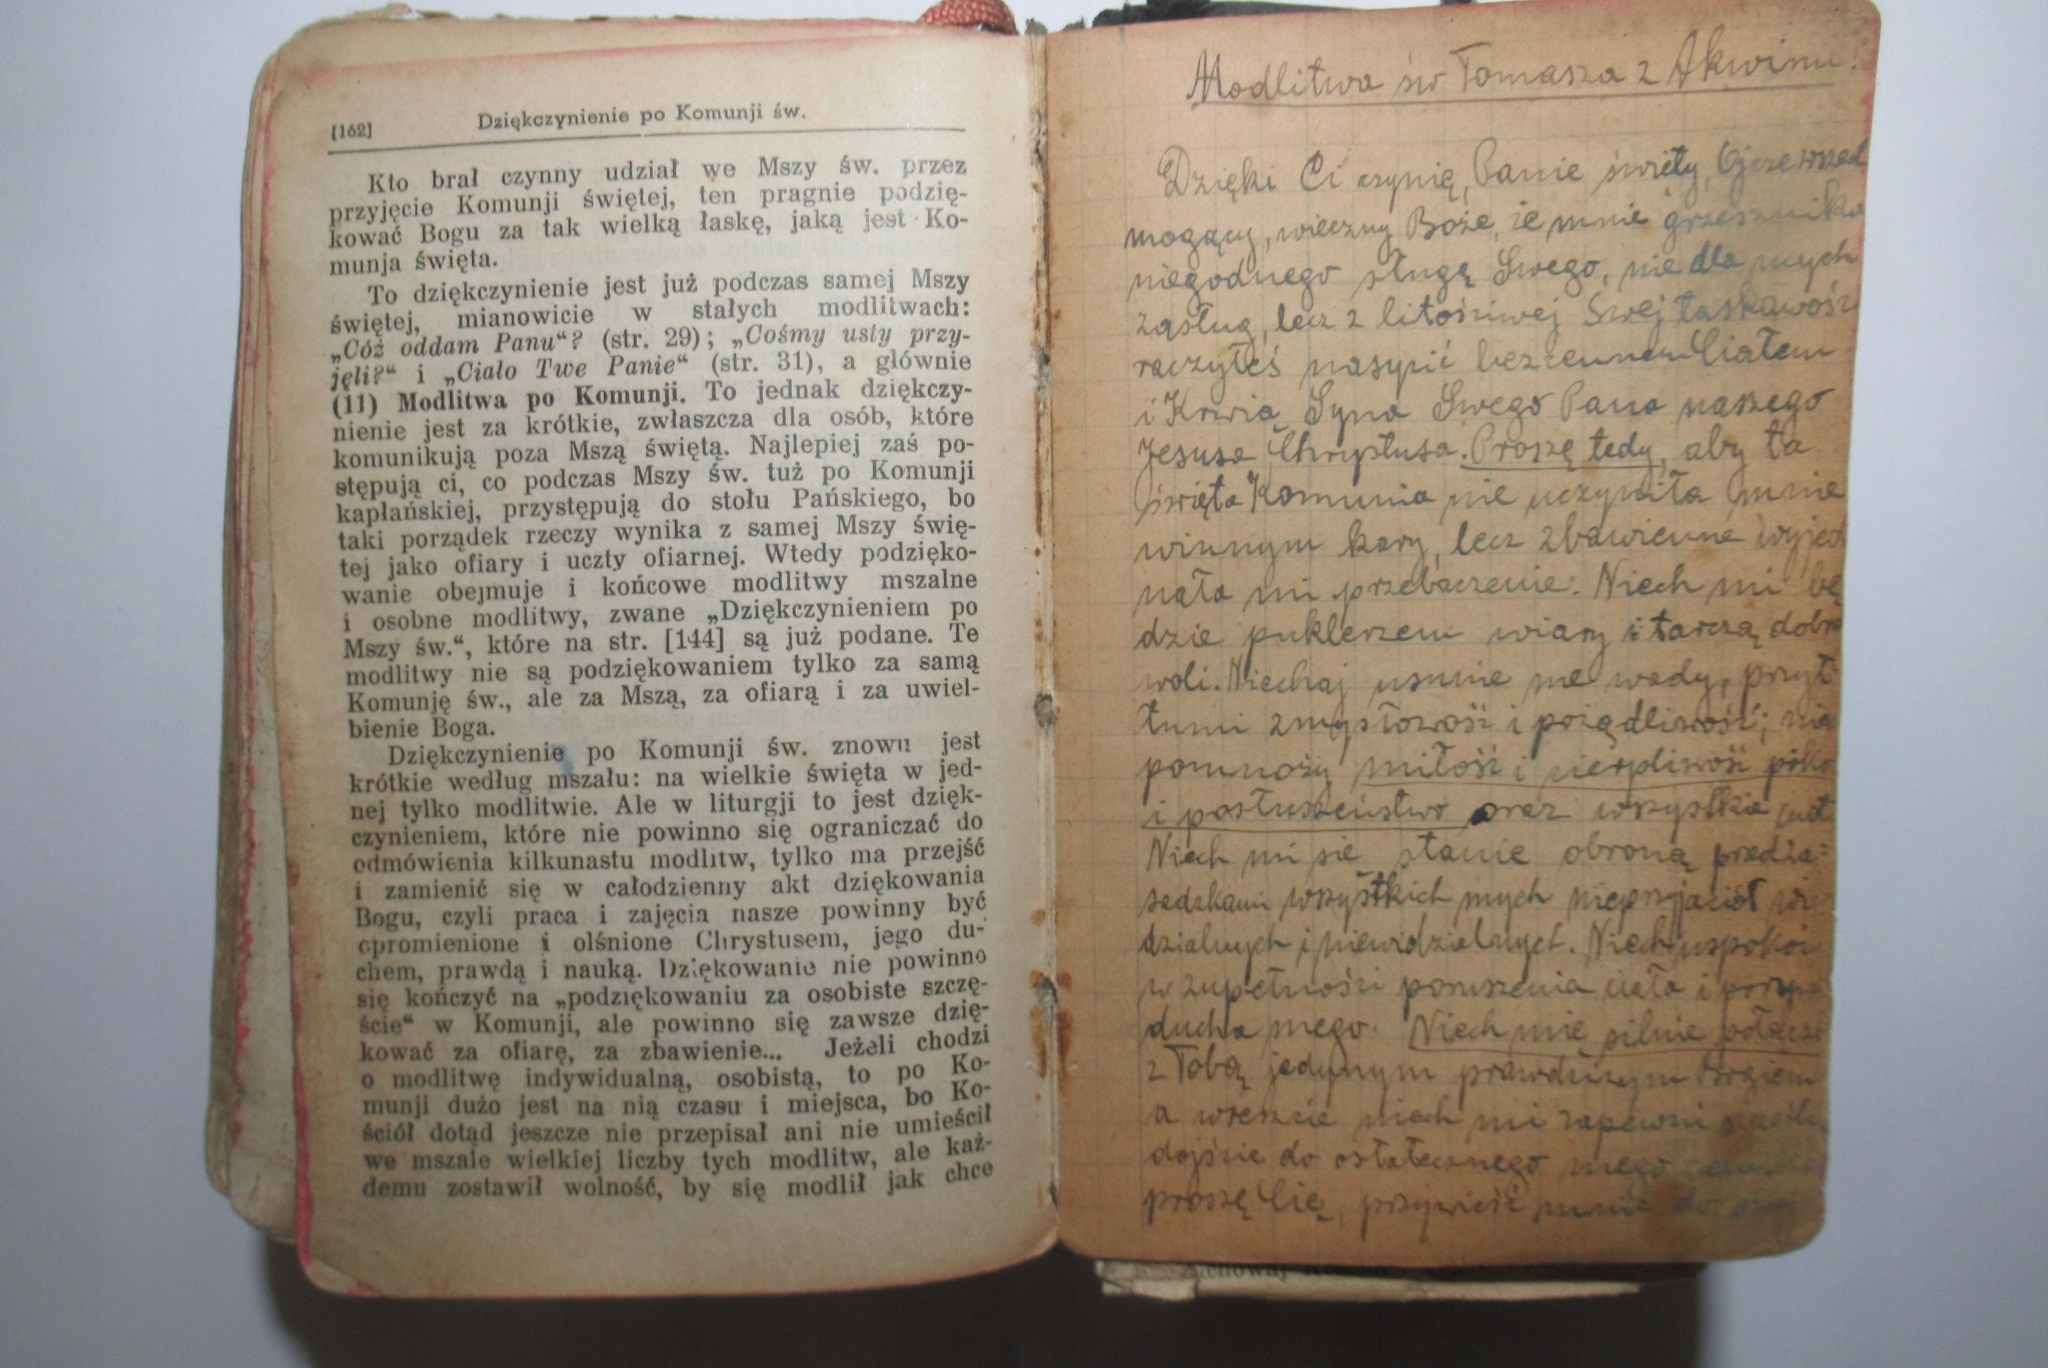 [162] Dziękczynienie po Komunji św.
Kto brał czynny udział we Mszy św. przez
przyjęcie Komunji świętej, ten pragnie podzię-
kować Bogu za tak wielką łaskę, jaką jest Ko-
munja święta.
To dziękczynienie jest już podczas samej Mszy
świętej, mianowicie w stałych modlitwach:
„Cóż oddam Panu“? (str. 29); „Cośmy usty przy-
jęli?“ i „Ciało Twe Panie“ (str. 31), a głównie
(11) Modlitwa po Komunji. To jednak dziękczy-
nienie jest za krótkie, zwłaszcza dla osób, które
komunikują poza Mszą świętą. Najlepiej zaś po-
stępują ci, co podczas Mszy św. tuż po Komunji
kapłańskiej, przystępują do stołu Pańskiego, bo
taki porządek rzeczy wynika z samej Mszy świę-
tej jako ofiary i uczty ofiarnej. Wtedy podzięko-
wanie obejmuje i końcowe modlitwy mszalne
i osobne modlitwy, zwane „Dziękczynieniem po
Mszy św.“, które na str. [144] są już podane. Te
modlitwy nie są podziękowaniem tylko za samą
Komunję św., ale za Mszą, za ofiarą i za uwiel-
bienie Boga.
Dziękczynienie po Komunji św. znowu jest
krótkie według mszału: na wielkie święta w jed-
nej tylko modlitwie. Ale w liturgji to jest dzięk-
czynieniem, które nie powinno się ograniczać do
odmówienia kilkunastu modlitw, tylko ma przejść
i zamienić się w całodzienny akt dziękowania
Bogu, czyli praca i zajęcia nasze powinny być
opromienione i olśnione Chrystusem, jego du-
chem, prawdą i nauką. Dziękowanie nie powinno
się kończyć na „podziękowaniu za osobiste szczę-
ście“ w Komunji, ale powinno się zawsze dzię-
kować za ofiarę, za zbawienie... Jeżeli chodzi
o modlitwę indywidualną, osobistą, to po Ko-
munji dużo jest na nią czasu i miejsca, bo Ko-
ściół dotąd jeszcze nie przepisał ani nie umieścił
we mszale wielkiej liczby tych modlitw, ale każ-
demu zostawił wolność, by się modlił jak chce
Modlitwa św Tomasza z Akwinu.
Dzięki Ci czynię, Panie święty, Ojcze wszed
mogący, wieczny Boże, że mnie grzesznika
niegodnego sługę Swego, nie dla mych
zasług, lecz z litościwej Swej łaskawośc
raczyłeś nasycić bezcennem Ciałem
i Krwią Syna Swego Pana naszego
Jezusa Chrystusa. Proszę tedy, aby ta
święta Komunia nie uczyniła mnie
winnym kary, lecz zbawienne wyjed
nała mi przebaczenie. Niech mi bę
dzie puklerzem wiary i tarczą dobre
woli. Niechaj usunie me wady, przyt
łumi zmysłowość i pożądliwość; nie
pomnoży miłość i cierpliwość poko
i posłuszeństwo oraz wszystkie cnot
Niech mi się stanie obroną przed za-
sadzkami wszystkich mych nieprzyjaciół wi
dzialnych i niewidzialnych. Niech uspokoi
w zupełności poruszenia ciała i
ducha mego. Niech mie silnie połącz
z Tobą jedynym prawdziwym Bogiem
a wreszcie niech mi zapewni
dojście do ostatecznego mego
proszę Cię, przywieść mnie do